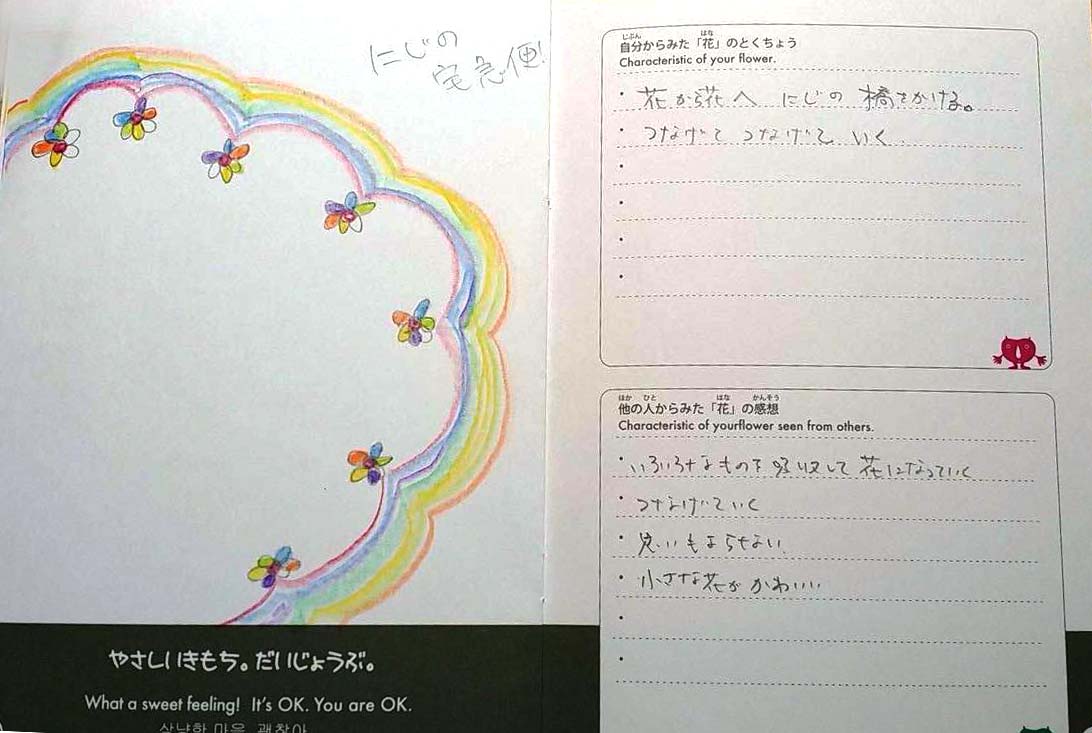 にじの
宅急便!
やさしいきもち。だいじょうぶ。
What a sweet feeling! It's OK. You are OK.
상냥한 마음. 괜찮아.
じぶん はな
自分からみた「花」のとくちょう
Characteristic of your flower.
・花から花へ にじの 橋をかける。
・つなげて つなげて いく
・
・
・
・
ほか ひと はな かんそう
他の人からみた「花」の感想
Characteristic of yourflower seen from others.
・いろいろなものを吸収して 花になっていく
・つなげていく
・思いもよらない
・小さな花が かわいい
・
・